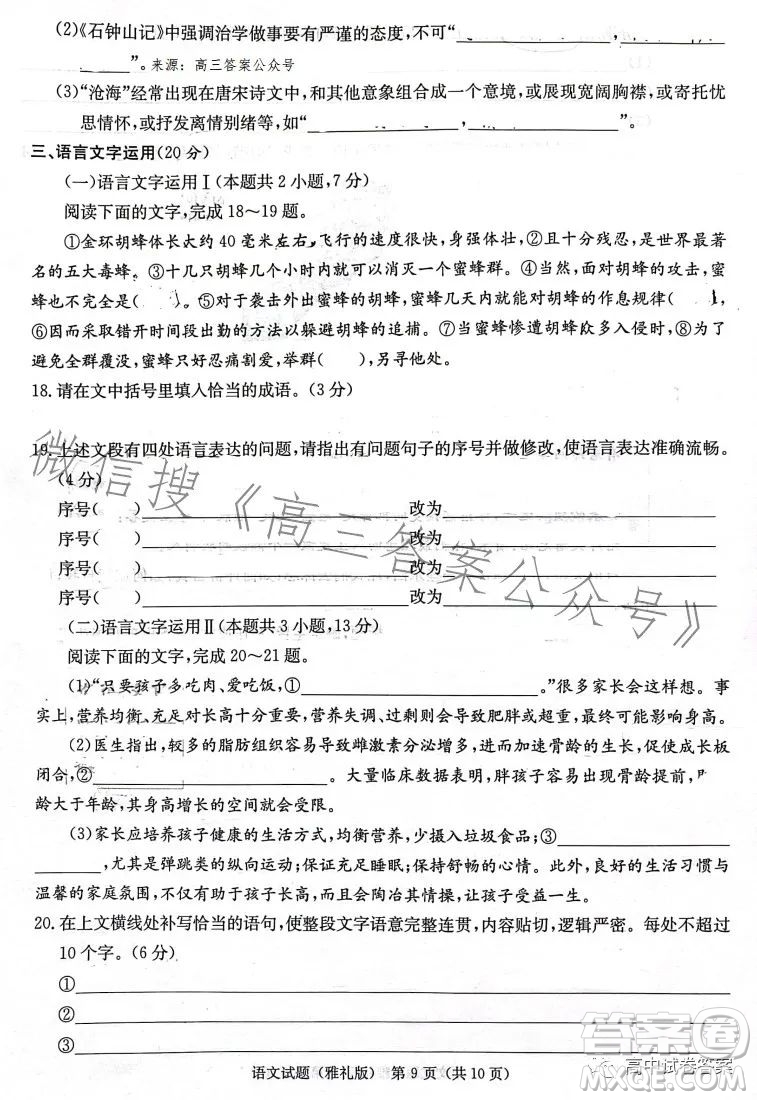 (2)《石钟山记》中强调治学做事要有严谨的态度,不可“
”。来源:高三答案公众号
(3)“沧海”经常出现在唐宋诗文中,和其他意象组合成一个意境,或展现宽阔胸襟,或寄托忧
思情怀,或抒发离情别绪等,如“ , ”。
三、语言文字运用(20分)
(一)语言文字运用Ⅰ(本题共2小题,7分)
阅读下面的文字,完成18~19题。
①金环胡蜂体长大约40毫米左右,飞行的速度很快,身强体壮,②且十分残忍,是世界最著
名的五大毒蜂。③十几只胡蜂几个小时内就可以消灭一个蜜蜂群。④当然,面对胡蜂的攻击,蜜
蜂也不完全是( )。⑤对于袭击外出蜜蜂的胡蜂,蜜蜂几天内就能按胡蜂的作息规律( ),
⑥因而采取错开时间段出勤的方法以躲避胡蜂的追捕。⑦当蜜蜂惨遭胡蜂众多入侵时,⑧为了
避免全群覆没,蜜蜂只好忍痛割爱,举群( ),另寻他处。
18.请在文中括号里填入恰当的成语。(3分)
19.上述文段有四处语言表达的问题,请指出有问题句子的序号并做修改,使语言表达准确流畅。
(4分)
序号( ) 改为
序号( ) 改为
序号( ) 改为
序号( ) 改为
(二)语言文字运用Ⅱ(本题共3小题,13分)
阅读下面的文字,完成20~21题。
(1)“只要孩子多吃肉、爱吃饭,① 。”很多家长会这样想。事
实上,营养均衡、充足对长高十分重要,营养失调、过剩则会导致肥胖或超重,最终可能影响身高。
(2)医生指出,较多的脂肪组织容易导致雌激素分泌增多,进而加速骨龄的生长,促使生长板
闭合,② 。大量临床数据表明,胖孩子容易出现骨龄提前,
龄大于年龄,其身高增长的空间就会受限。
(3)家长应培养孩子健康的生活方式,均衡营养,少摄入垃圾食品;③
,尤其是弹跳类的纵向运动;保证充足睡眠;保持舒畅的心情。此外,良好的生活习惯与
温馨的家庭氛围,不仅有助于孩子长高,而且会陶冶其情操,让孩子受益终身。
20.在上文横线处补写恰当的语句,使整段文字语意完整连贯,内容贴切,逻辑严密。每处不超过
10个字。(6分)
①
②
③
语文试题(雅礼版) 第9页(共10页)
微信搜《高三答案公众号》
答案圈
高中试卷答案
MXQE.COM